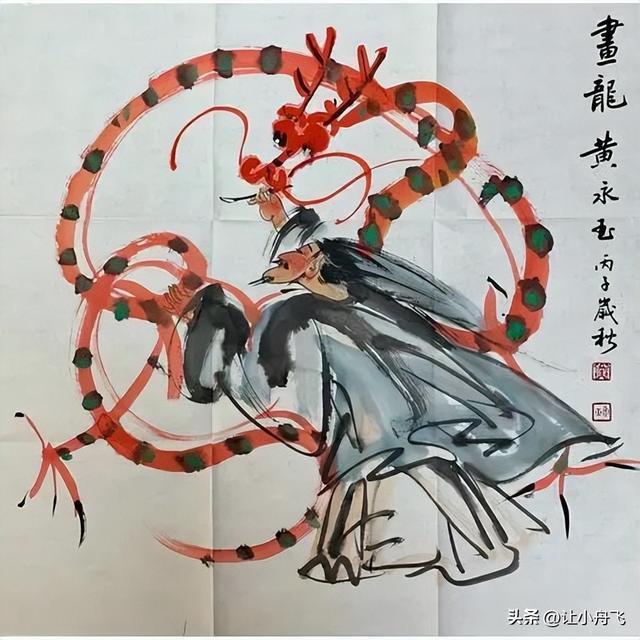 畫龍 黃永玉 丙子歲秋
头条 @让小舟飞